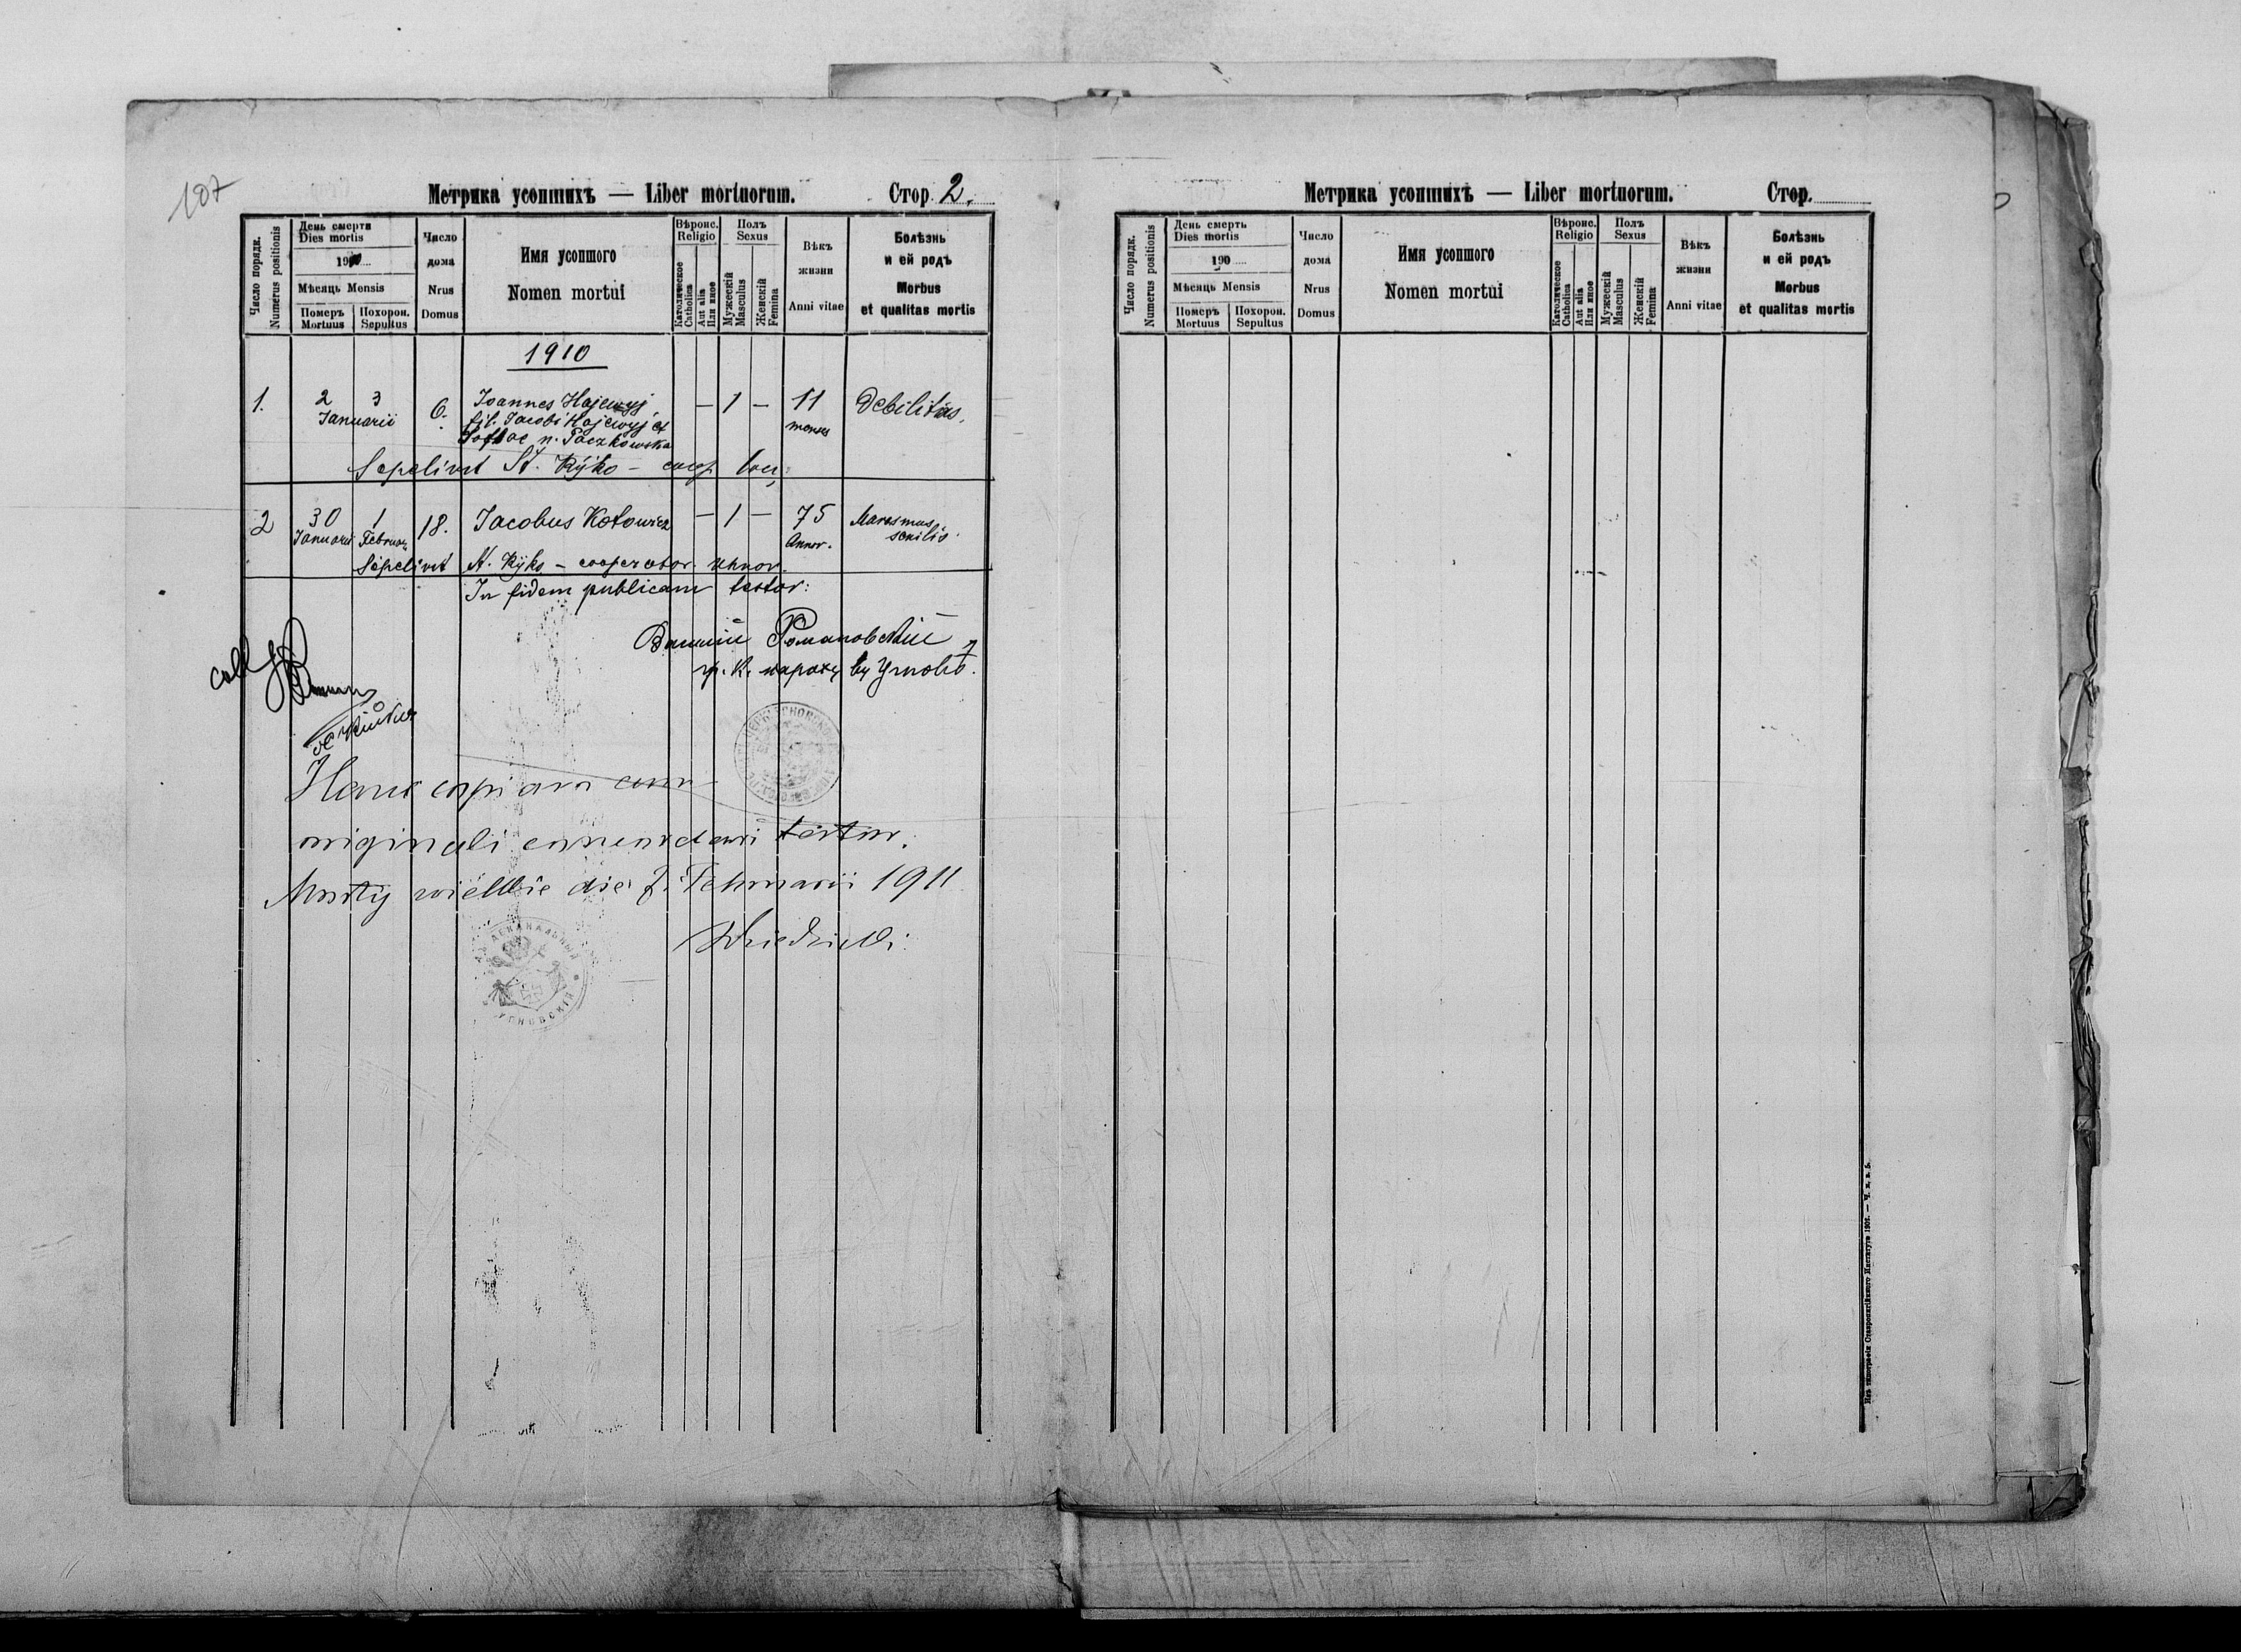 107
Метрика усопшихъ — Liber mortuorum. Стор. 2.
Число порядк. Numerus positionis
День смерти Dies mortis
1910
Мѣсяць Mensis
Померъ Mortuus
Похорон. Sepultus
Число дома Nrus Domus
Имя усопшого Nomen mortui
Вѣроис. Religio
Католическое Catholica
Aut alia Или иное
Полъ Sexus
Мужескій Masculus
Женскій Femina
Вѣкъ жизни Anni vitae
Болѣзнь и ей родъ Morbus et qualitas mortis
1910
1. 2 3 Januarii 6. Joannes Hajewyj — 1 — 11 menses Debilitas.
fil. Jacobi Hajewyj et
Sofiae n. Paczkowska
Sepelivit St. Ryko — coop. loci
2 30 Januarii 1 Februar. 18. Jacobus Kotowicz — 1 — 75 Annor. Marasmus senilis.
Sepelivit St. Ryko — cooperator uhnov.
In fidem publicam testor:
Василій Романовскій
гр. к. парохъ въ Угновѣ.
Hanc copiam cum
originali concordari testor.
Mosty wielkie die 7. Februarii 1911
УГНОВСКІЙ
Метрика усопшихъ — Liber mortuorum. Стор.
Число порядк. Numerus positionis
День смерть Dies mortis
190
Мѣсяць Mensis
Померъ Mortuus
Похорон. Sepultus
Число дома Nrus Domus
Имя усопшого Nomen mortui
Вѣроис. Religio
Католическое Catholica
Aut alia Или иное
Полъ Sexus
Мужескій Masculus
Женскій Femina
Вѣкъ жизни Anni vitae
Болѣзнь и ей родъ Morbus et qualitas mortis
Изъ типографіи Ставропигійского Института 190